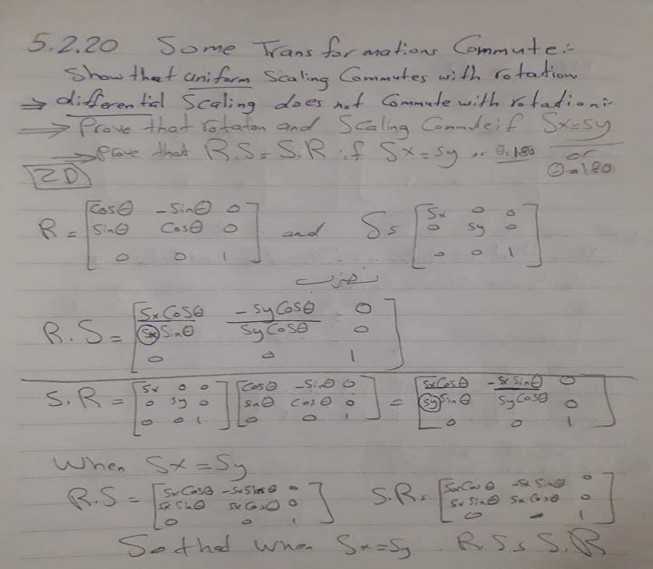 5.2.20 Some Transformations Commute:-
Show that uniform Scaling Commutes with rotation
→ differential Scaling does not Commute with rotation:-
⇒ Prove that rotaton and Scaling Commute if Sx=Sy
→ prove that R.S = S.R if Sx=Sy or θ=180 or θ=180
2D
R = [cosθ -sinθ 0; sinθ cosθ 0; 0 0 1] and S = [Sx 0 0; 0 sy 0; 0 0 1]
نضرب
R.S = [SxCosθ -SyCosθ 0; SxSinθ SyCosθ 0; 0 0 1]
S.R = [Sx 0 0; 0 sy 0; 0 0 1] [Cosθ -Sinθ 0; sinθ cosθ 0; 0 0 1] = [SxCosθ -SxSinθ 0; SySinθ SyCosθ 0; 0 0 1]
When Sx = Sy
R.S = [SxCosθ -SxSinθ 0; SxSinθ SxCosθ 0; 0 0 1] S.R = [SxCosθ -SxSinθ 0; SxSinθ SxCosθ 0; 0 0 1]
So that when Sx=Sy R.S = S.R